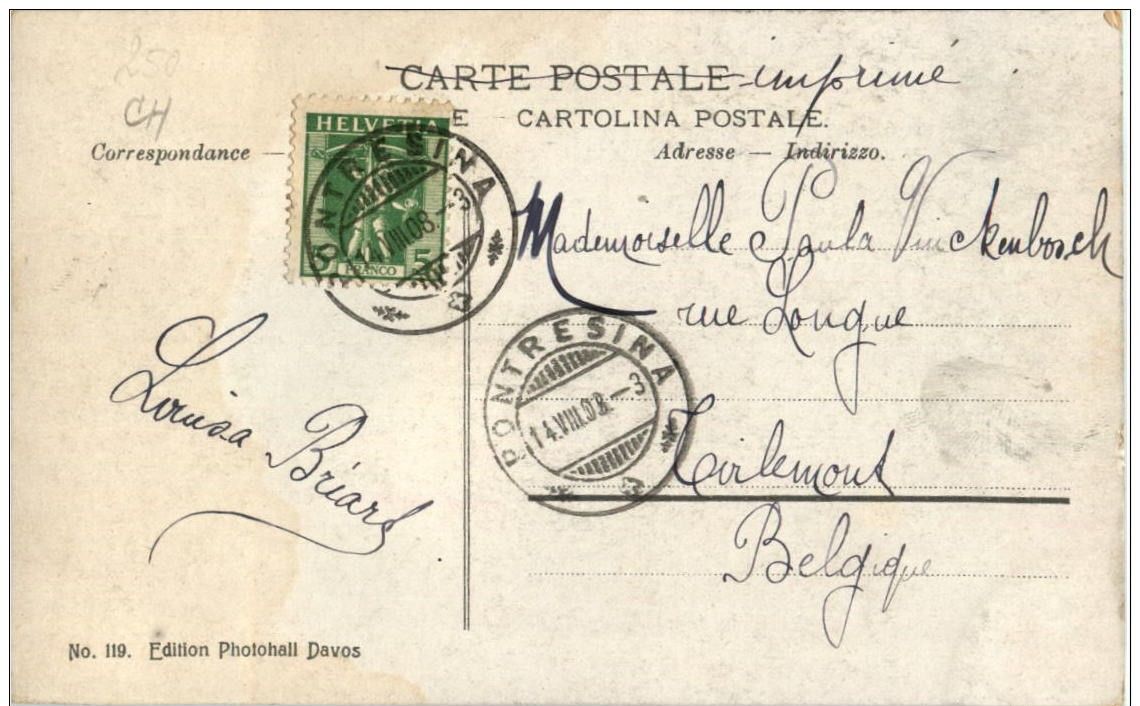 250
CH
CARTE POSTALE imprimé
E CARTOLINA POSTALE.
Correspondance —
Adresse — Indirizzo.
HELVETIA
5 FRANCO 5
PONTRESINA
14.VIII.08.–3
Mademoiselle Paula Vinckenbosch
rue Longue
PONTRESINA
14.VIII.08.–3
Tirlemont
Belgique
Louisa Briart
No. 119. Edition Photohall Davos